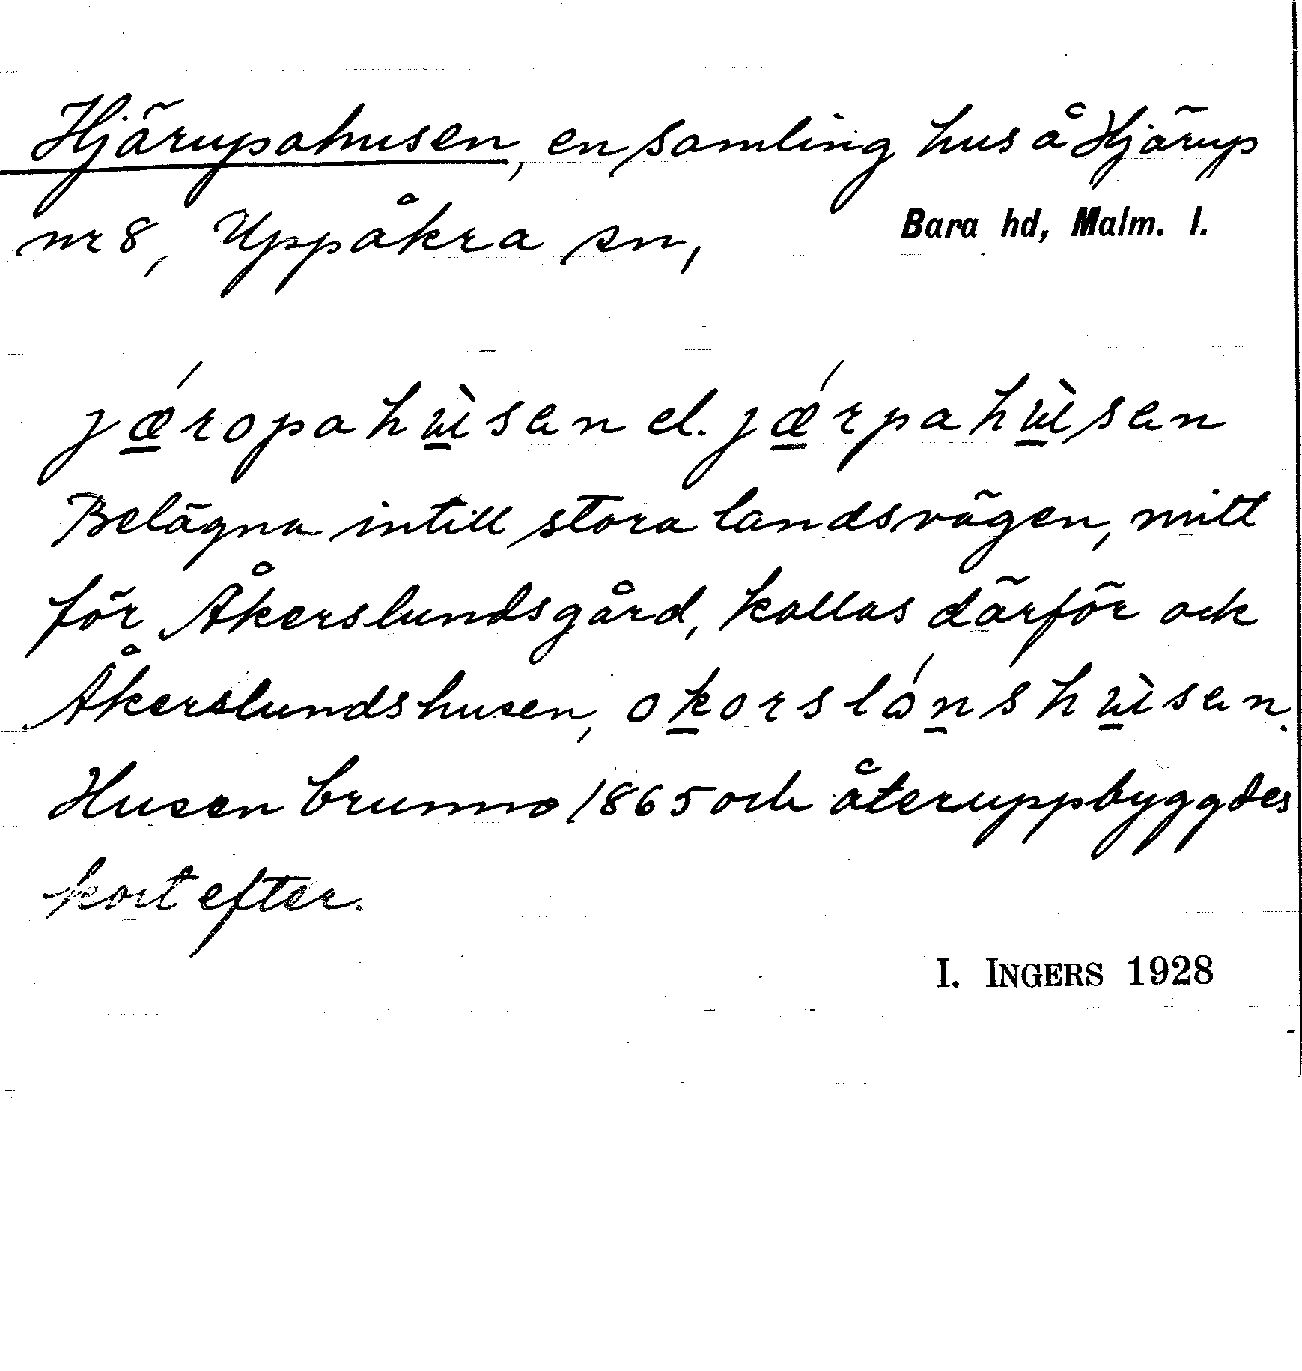 Hjärupahusen, en samling hus å Hjärup
nr 8, Uppåkra sn, Bara hd, Malm. l.
jǽropahɯ̀sen el. jǽrpahɯ̀sen
Belägna intill stora landsvägen, mitt
för Åkerslundsgård, kallas därför ock
Åkerslundshusen, okorslónshɯ̀sen.
Husen brunno 1865 och återuppbyggdes
kort efter.
I. INGERS 1928